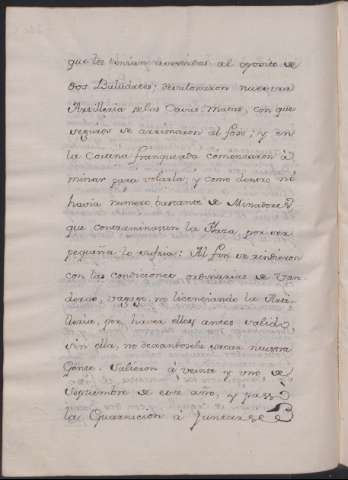 que les tenian arrimadas al oposito de
dos Baluartes; desalojaron nuestra
Artilleria de las Casas Matas, con que
seguros se arrimaron al foso; y en
la Cortina franqueada comenzaron á
minar para volarla; y como dentro no
havia numero bastante de Minadores
que contraminasen la Plaza, por ser
pequeña lo sufrio: Al fin se rindieron
con las condiciones ordinarias de Van
deras, no licenciando la Arti
lleria, por haver ellos antes salido
sin ella, no dexandosela sacar nuestra
Gente. Salieron á veinte y uno de
Septiembre de este año, y pasó
la Guarnicion á Juntarse